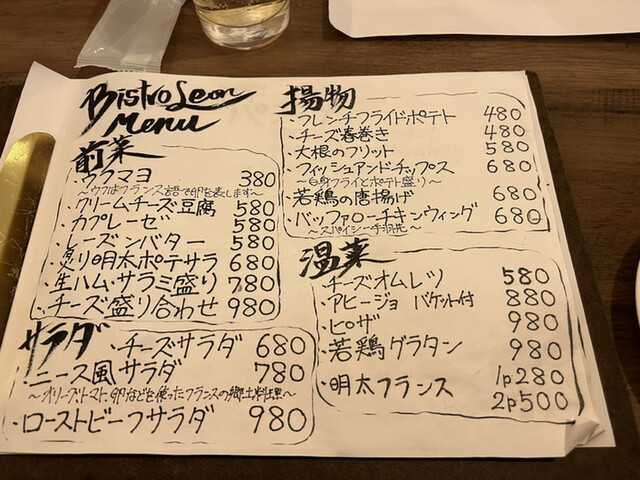 Bistro Leon
Menu
前菜
・ウフマヨ 380
～ウフはフランス語で卵を表します～
・クリームチーズ豆腐 580
・カプレーゼ 580
・レーズンバター 580
・炙り明太ポテサラ 680
・生ハム・サラミ盛り 780
・チーズ盛り合わせ 980
サラダ
・チーズサラダ 680
・ニース風サラダ 780
～オリーブ・トマト、卵などを使ったフランスの郷土料理～
・ローストビーフサラダ 980
揚物
・フレンチフライドポテト 480
・チーズ春巻き 480
・大根のフリット 580
・フィッシュアンドチップス 680
～白身フライとポテト盛り～
・若鶏の唐揚げ 680
・バッファローチキンウィング 680
～スパイシー手羽先～
温菜
・チーズオムレツ 580
・アヒージョ バケット付 880
・ピザ 980
・若鶏グラタン 980
・明太フランス 1p280
2p500